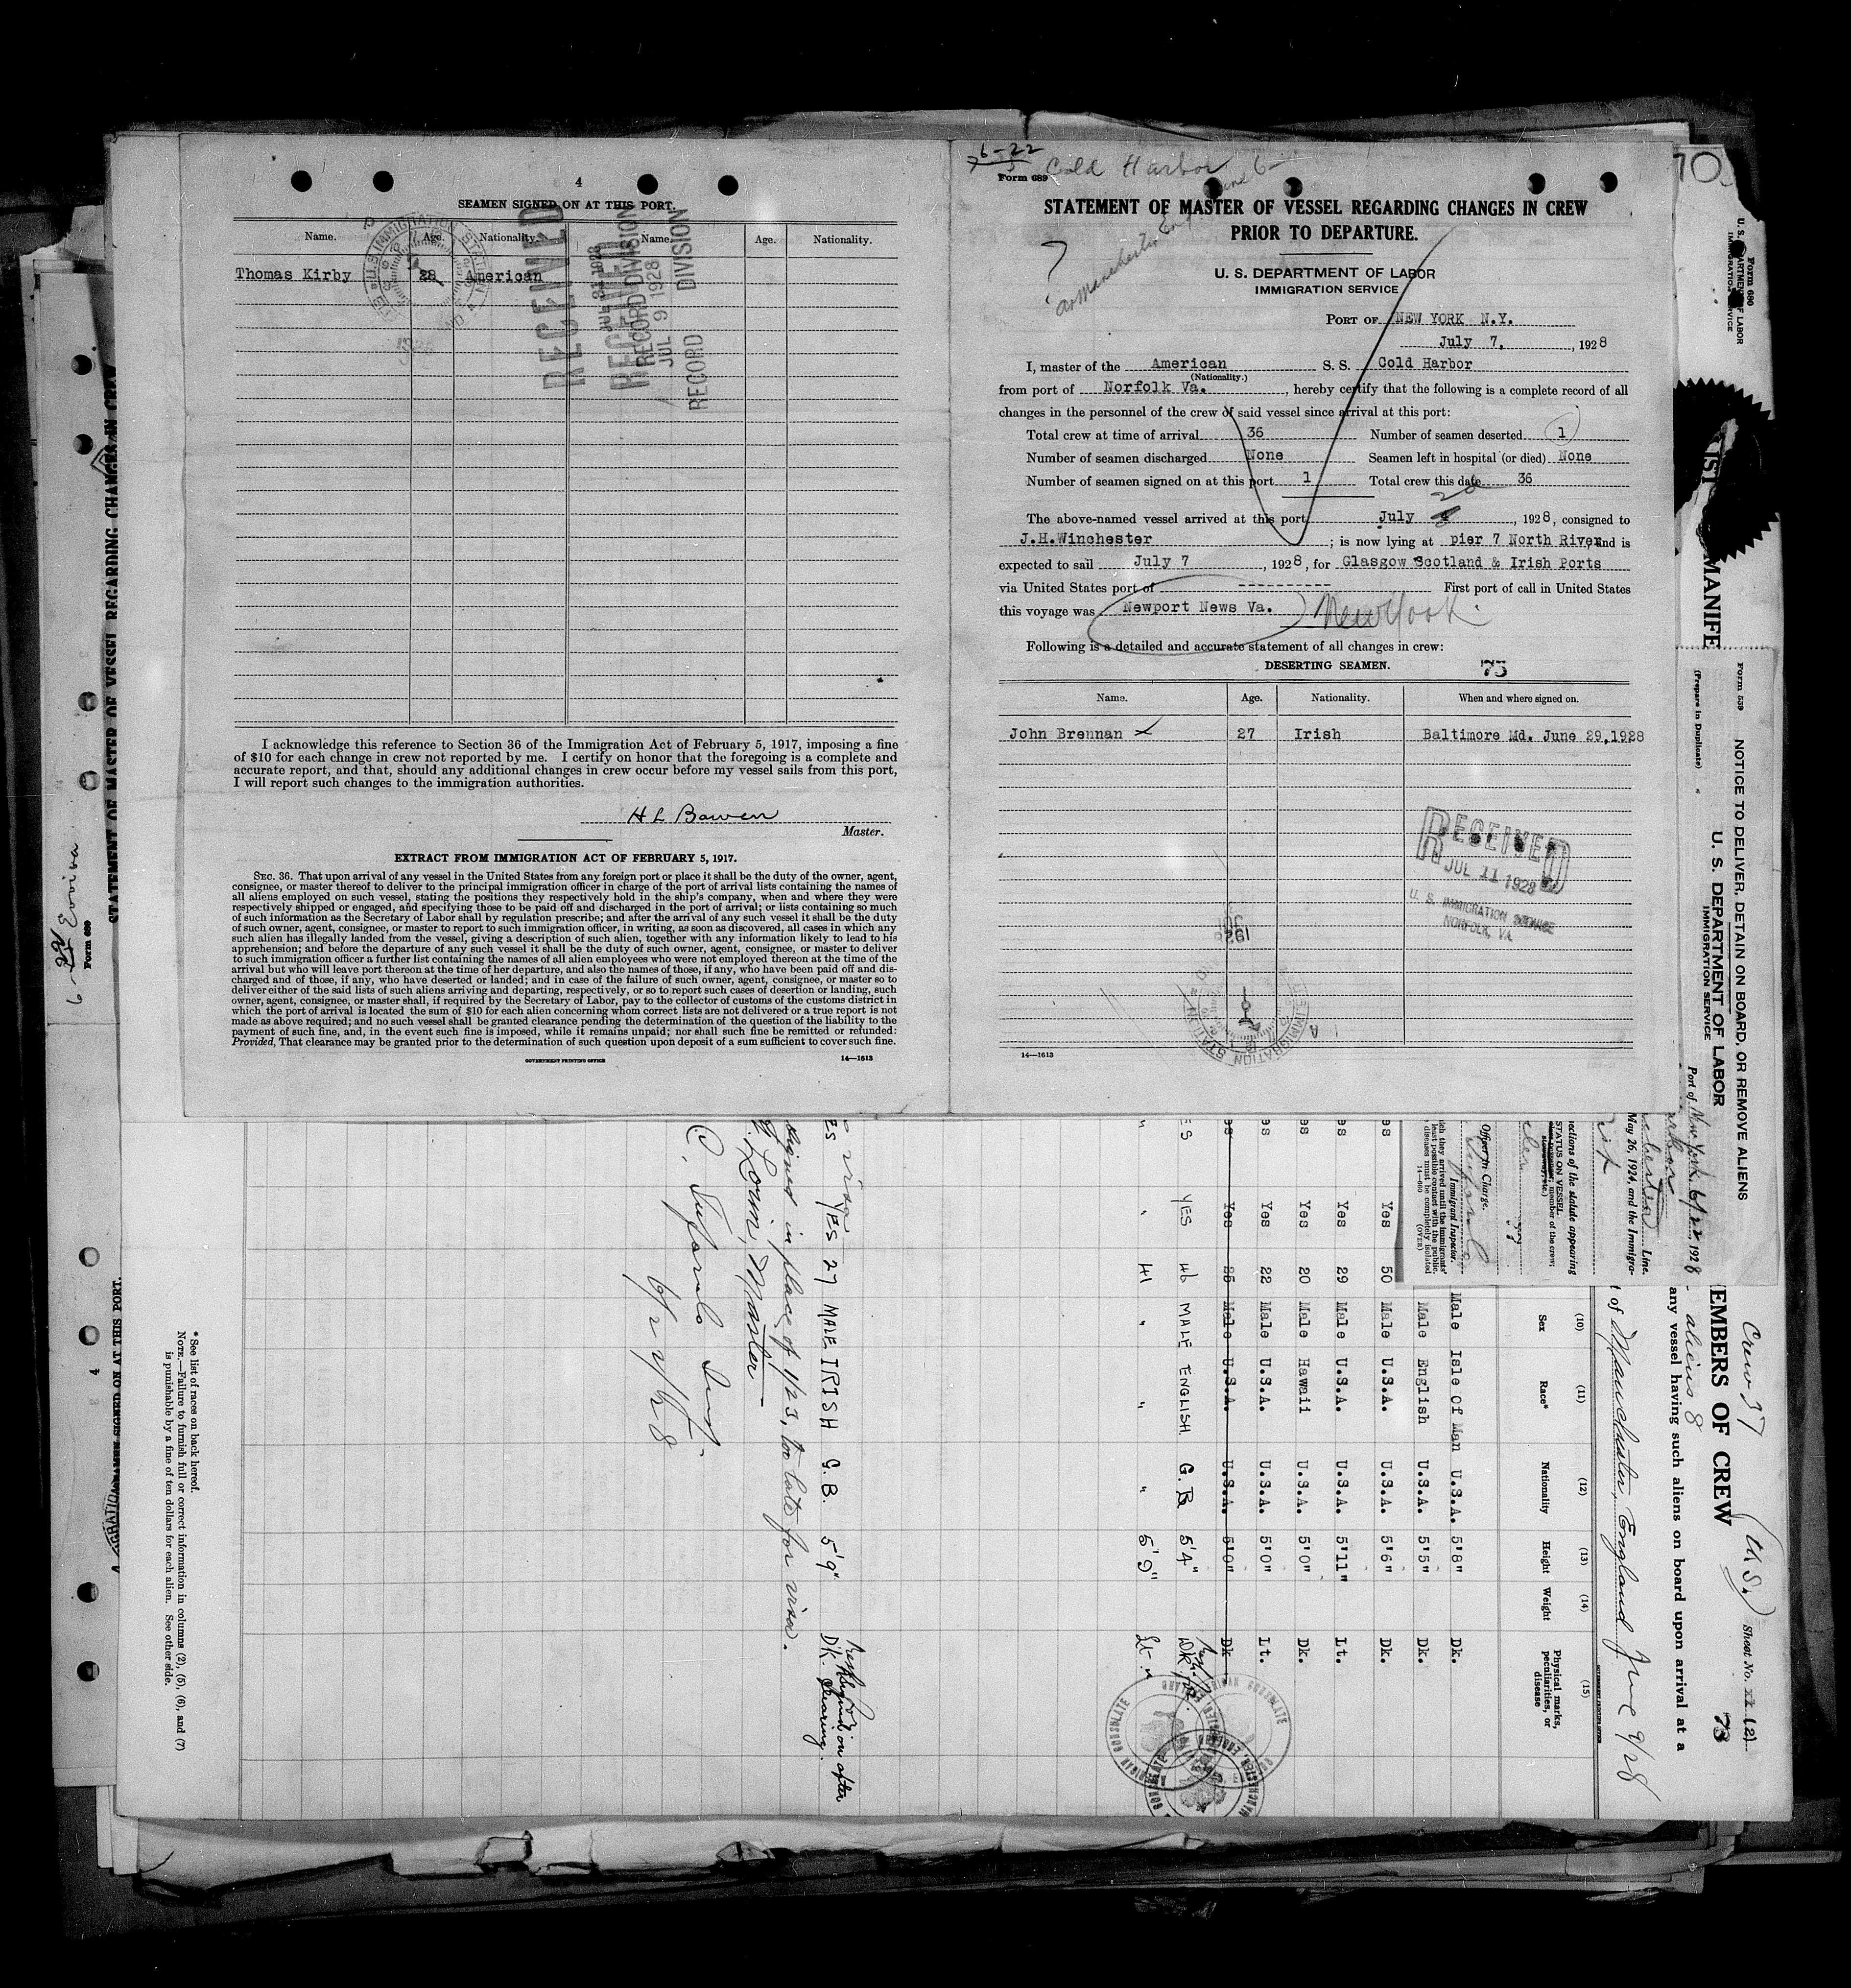 4
SEAMEN SIGNED ON AT THIS PORT.
Name. Age. Nationality. Name. Age. Nationality.
Thomas Kirby 28 American
RECEIVED
JUL 9 1928
RECORD DIVISION
I acknowledge this reference to Section 36 of the Immigration Act of February 5, 1917, imposing a fine
of $10 for each change in crew not reported by me. I certify on honor that the foregoing is a complete and
accurate report, and that, should any additional changes in crew occur before my vessel sails from this port,
I will report such changes to the immigration authorities.
H L Bawen
Master.
EXTRACT FROM IMMIGRATION ACT OF FEBRUARY 5, 1917.
SEC. 36. That upon arrival of any vessel in the United States from any foreign port or place it shall be the duty of the owner, agent,
consignee, or master thereof to deliver to the principal immigration officer in charge of the port of arrival lists containing the names of
all aliens employed on such vessel, stating the positions they respectively hold in the ship's company, when and where they were
respectively shipped or engaged, and specifying those to be paid off and discharged in the port of arrival; or lists containing so much
of such information as the Secretary of Labor shall by regulation prescribe; and after the arrival of any such vessel it shall be the duty
of such owner, agent, consignee, or master to report to such immigration officer, in writing, as soon as discovered, all cases in which any
such alien has illegally landed from the vessel, giving a description of such alien, together with any information likely to lead to his
apprehension; and before the departure of any such vessel it shall be the duty of such owner, agent, consignee, or master to deliver
to such immigration officer a further list containing the names of all alien employees who were not employed thereon at the time of the
arrival but who will leave port thereon at the time of her departure, and also the names of those, if any, who have been paid off and dis-
charged and of those, if any, who have deserted or landed; and in case of the failure of such owner, agent, consignee, or master so to
deliver either of the said lists of such aliens arriving and departing, respectively, or so to report such cases of desertion or landing, such
owner, agent, consignee, or master shall, if required by the Secretary of Labor, pay to the collector of customs of the customs district in
which the port of arrival is located the sum of $10 for each alien concerning whom correct lists are not delivered or a true report is not
made as above required; and no such vessel shall be granted clearance pending the determination of the question of the liability to the
payment of such fine, and, in the event such fine is imposed, while it remains unpaid; nor shall such fine be remitted or refunded:
Provided, That clearance may be granted prior to the determination of such question upon deposit of a sum sufficient to cover such fine.
GOVERNMENT PRINTING OFFICE 14—1613
6-22
Cold Harbor
Form 689
STATEMENT OF MASTER OF VESSEL REGARDING CHANGES IN CREW
PRIOR TO DEPARTURE.
U. S. DEPARTMENT OF LABOR
IMMIGRATION SERVICE
PORT OF NEW YORK N.Y.
July 7, , 1928
I, master of the American S. S. Cold Harbor
(Nationality.)
from port of Norfolk Va. , hereby certify that the following is a complete record of all
changes in the personnel of the crew of said vessel since arrival at this port:
Total crew at time of arrival 36 Number of seamen deserted 1
Number of seamen discharged None Seamen left in hospital (or died) None
Number of seamen signed on at this port 1 Total crew this date 36
The above-named vessel arrived at this port July , 1928, consigned to
J.H.Winchester ; is now lying at pier 7 North River and is
expected to sail July 7 , 1928, for Glasgow Scotland & Irish Ports
via United States port of ---------- First port of call in United States
this voyage was Newport News Va. New York.
Following is a detailed and accurate statement of all changes in crew:
DESERTING SEAMEN. 75
Name. Age. Nationality. When and where signed on.
John Brennan 27 Irish Baltimore Md. June 29,1928
RECEIVED
JUL 11 1928
U. S. IMMIGRATION SERVICE
NORFOLK, VA
14—1613
Form 680
MANIFE
Form 539 NOTICE TO DELIVER, DETAIN ON BOARD, OR REMOVE ALIENS
(Prepare in Duplicate)
U. S. DEPARTMENT OF LABOR
IMMIGRATION SERVICE
Port of New York 6/22 1928
Line.
May 26, 1924, and the Immigra-
ections of the statute appearing
STATUS ON VESSEL
Immigrant Inspector.
Officer in Charge.
(OVER)
Crew 37
aliens 8
Sheet No. (2)
73
EMBERS OF CREW
any vessel having such aliens on board upon arrival at a
of Manchester, England June 9/28
(10) (11) (12) (13) (14) (15)
Sex Race* Nationality Height Weight Physical marks, peculiarities, or disease
Male Isle Of Man U.S.A. 5'8" Dk.
Male English U.S.A. 5'5" Dk.
Yes 50 Male U.S.A. U.S.A. 5'6" Dk.
Yes 29 Male U.S.A. U.S.A. 5'11" Lt.
Yes 20 Male Hawaii U.S.A. 5'0" Dk.
Yes 22 Male U.S.A. U.S.A. 5'0" Lt.
Yes 25 Male U.S.A. U.S.A. 5'0" Dk
YES 46 MALE ENGLISH G.B 5'4"
" 41 " " " 5'9"
YES 27 MALE IRISH G.B. 5'9" Dk.
signed in place of 1/23, too late for visa.
Master
6/22/28
* See list of races on back hereof.
NOTE.—Failure to furnish full or correct information in columns (2), (5), (6), and (7)
is punishable by a fine of ten dollars for each alien. See other side.
STATEMENT OF MASTER OF VESSEL REGARDING CHANGES IN CREW
Form 689
4
SEAMEN SIGNED ON AT THIS PORT.